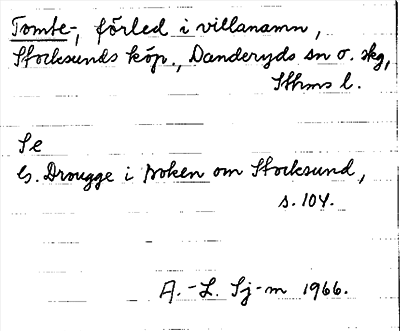 Tomte-, förled i villanamn,
Stocksunds köp., Danderyds sn o. skg,
Sthms l.
Se
G. Drougge i Boken om Stocksund,
s. 104.
A.-L. Sj-m 1966.